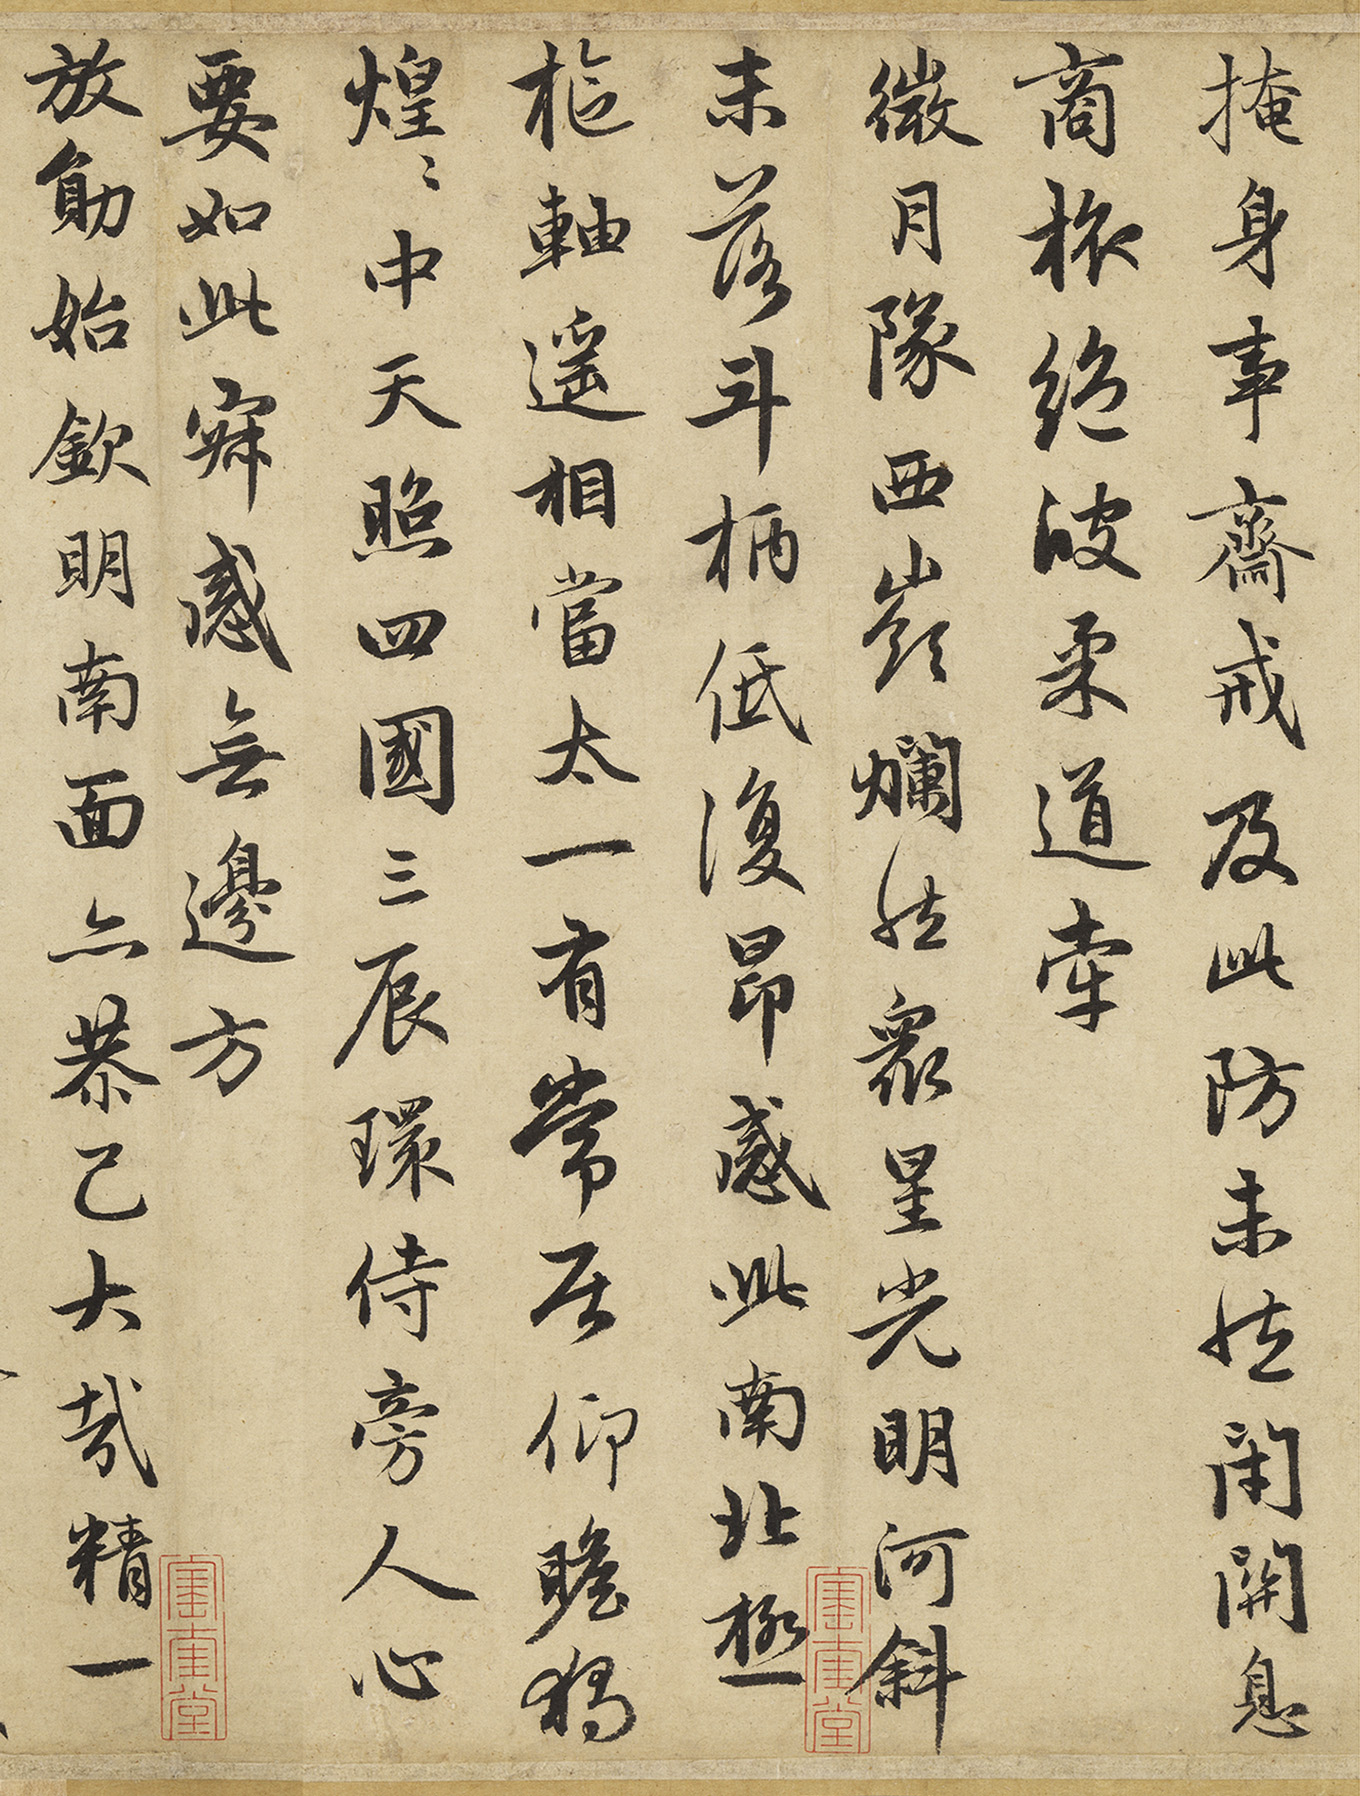 掩身事齋戒及此防未然閉關息
商旅絕彼柔道牽
微月隊西嶺爛然衆星光明河斜
未落斗柄低復昂感此南北極
樞軸遙相當太一有常居仰瞻獨
煌〻中天照四國三辰環侍旁人心
要如此寂感無邊方
放勛始欽明南面亦恭己大哉精一